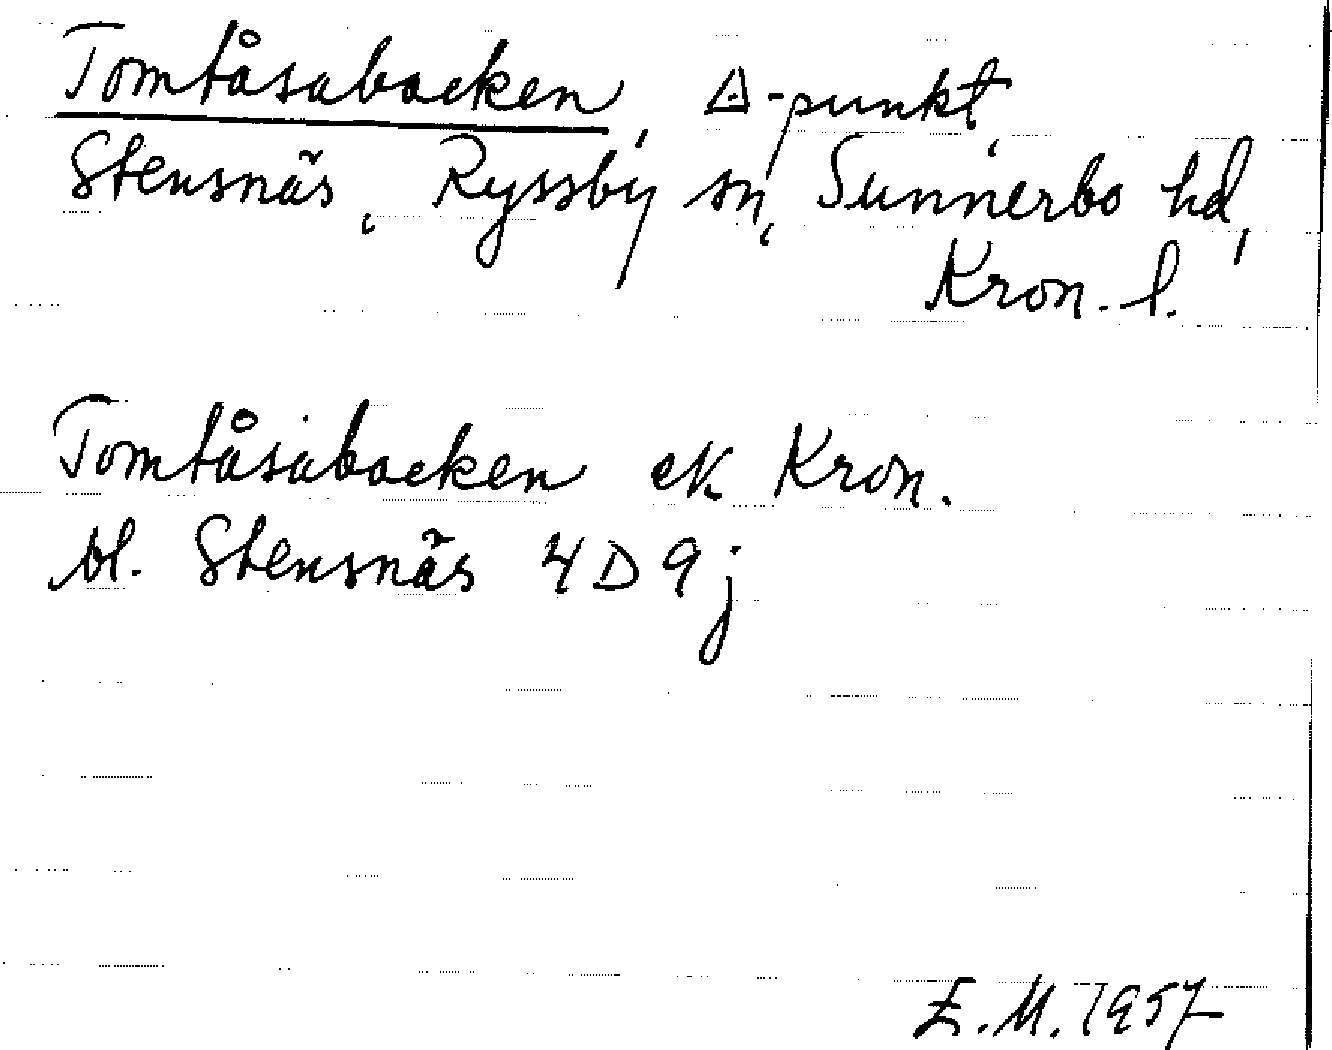 Tomtåsabacken, △-punkt,
Stensnäs, Ryssby sn, Sunnerbo hd,
Kron. l.
Tomtåsabacken ek Kron.
bl. Stensnäs 4D9j
E.M. 1957